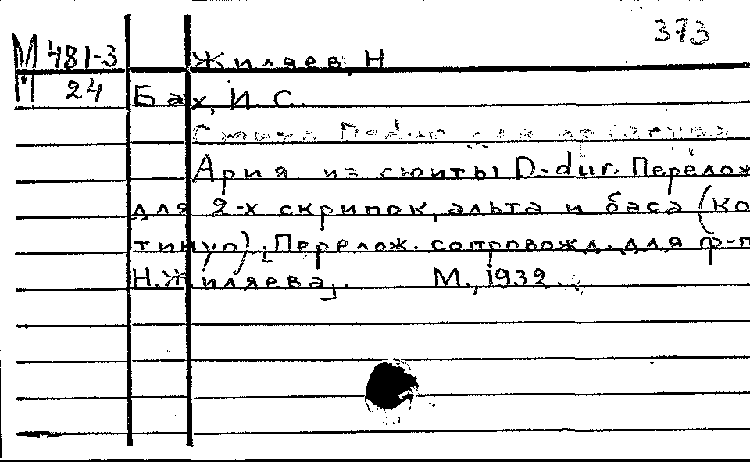 373
М 481-3 Жиляев, Н
П 24 Бах, И. С.
Сюита D-dur для
Ария из сюиты D-dur. Перелож
для 2-х скрипок, альта и баса (ко
тинуо). [Перелож. сопровожд. для ф-п
Н. Жиляева]. М., 1932